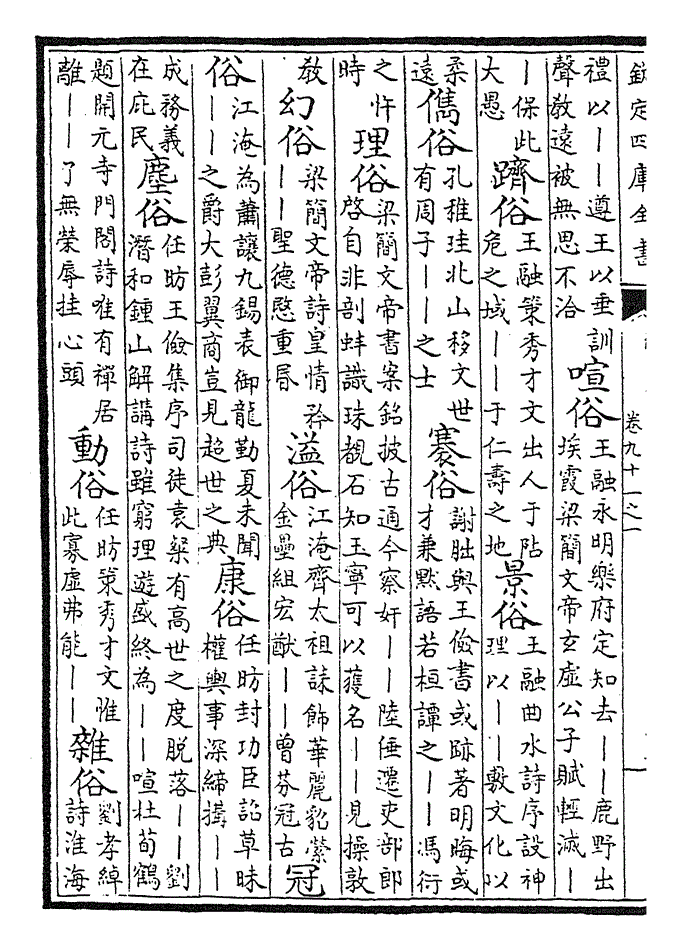 欽定四庫全書
卷九十一之一
禮以——遵王以垂訓
聲敎遠被無思不洽
喧俗
王融永明樂府定知去——鹿野出
埃霞梁簡文帝玄虛公子賦輕滅—
—保此
大愚
躋俗
王融策秀才文出人于阽
危之域——于仁壽之地
景俗
王融曲水詩序設神
理以——敷文化以
柔
遠
儁俗
孔稚珪北山移文世
有周子——之士
褰俗
謝朏與王儉書或跡著明晦或
才兼默語若桓譚之——馮衍
之忤
時
理俗
梁簡文帝書案銘披古通今察奸——陸倕遷吏部郎
啓自非剖蚌識珠覩石知玉寧可以獲名——見操敦
放
幻俗
梁簡文帝詩皇情矜
——聖德愍重昏
溢俗
江淹齊太祖誄飾華麗貂縈
金壘組宏猷——曾芬冠古
冠
俗
江淹為蕭讓九錫表御龍勤夏未聞
——之爵大彭翼商豈見超世之典
康俗
任昉封功臣詔草昧
權輿事深締搆——
成務義
在庇民
塵俗
任昉王儉集序司徒袁粲有高世之度脱落——劉
潛和鍾山解講詩雖窮理遊盛終為——喧杜荀鶴
題開元寺門閣詩唯有禪居
離——了無榮辱挂心頭
動俗
任昉策秀才文惟
此寡虛弗能——
雜俗
劉孝綽
詩淮海